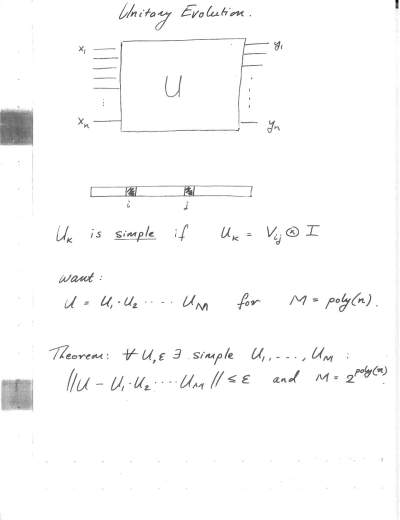 Unitary Evolution.
x₁ y₁
U
xₙ yₙ
i j
Uₖ is simple if Uₖ = Vᵢⱼ ⊗ I
want:
U = U₁·U₂ ····· U_M for M = poly(n).
Theorem: ∀ U,ε ∃ simple U₁,...., U_M :
||U - U₁·U₂ ···· U_M|| ≤ ε and M = 2^poly(n)